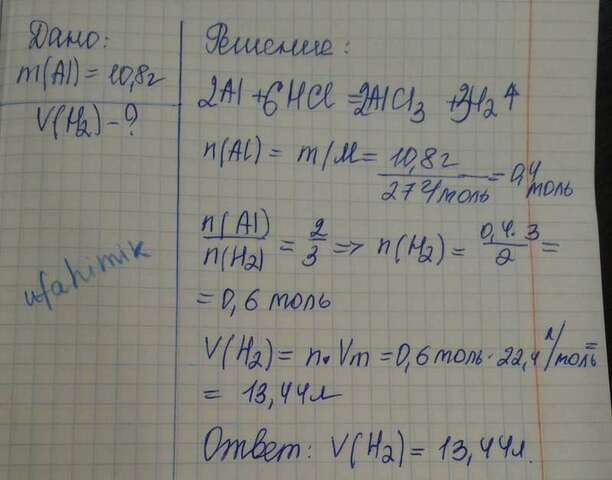 Дано:
m(Al) = 10,8г
V(H₂) - ?
ufahimik
Решение:
2Al + 6HCl = 2AlCl₃ + 3H₂↑
n(Al) = m/M = 10,8г / 27г/моль = 0,4 моль
n(Al) / n(H₂) = 2/3 => n(H₂) = 0,4·3 / 2 =
= 0,6 моль
V(H₂) = n·Vm = 0,6 моль · 22,4 л/моль =
= 13,44л
Ответ: V(H₂) = 13,44л.